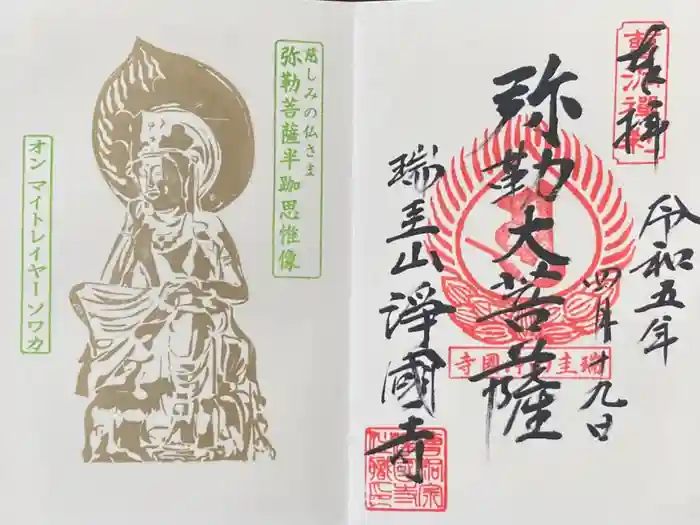 奉拝
令和五年
四月十九日
弥勒大菩薩
瑞圭山淨國寺
瑞圭山淨國寺
慈しみの仏さま
弥勒菩薩半跏思惟像
オン マイトレイヤー ソワカ